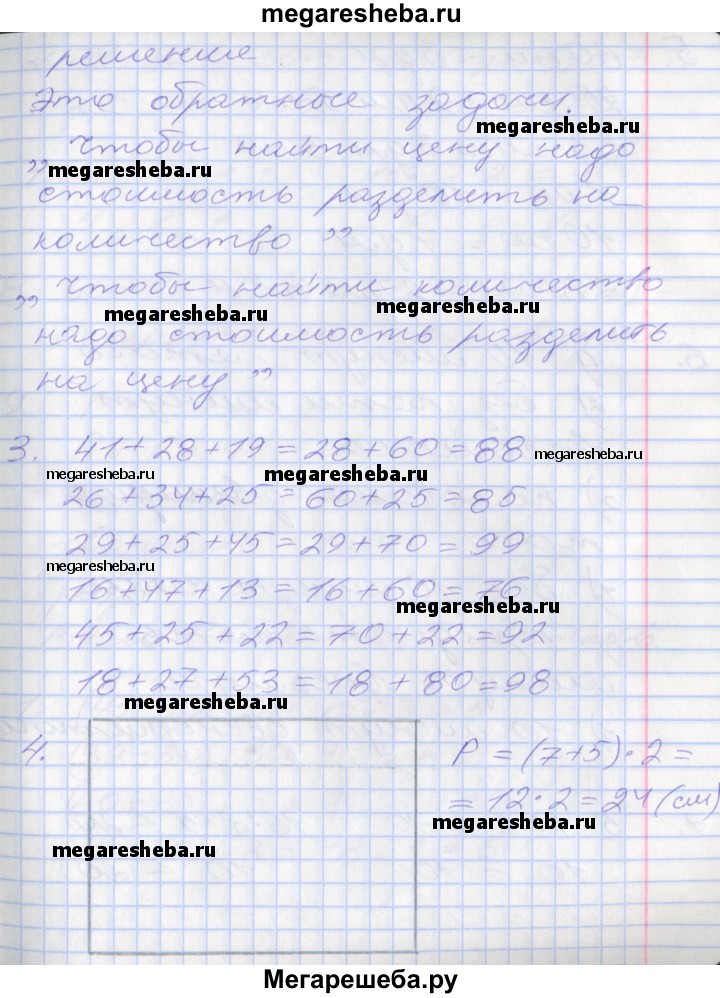 megaresheba.ru
решение
Это обратные задачи.
megaresheba.ru
„ Чтобы найти цену надо
megaresheba.ru
стоимость разделить на
количество ”
„ Чтобы найти количество
megaresheba.ru
megaresheba.ru
надо стоимость разделить
на цену ”
3. 41+28+19=28+60=88
megaresheba.ru
megaresheba.ru
megaresheba.ru
26+34+25=60+25=85
29+25+45=29+70=99
megaresheba.ru
16+47+13=16+60=76
megaresheba.ru
45+25+22=70+22=92
18+27+53=18+80=98
megaresheba.ru
4. P=(7+5)·2=
=12·2=24(см)
megaresheba.ru
megaresheba.ru
Мегарешеба.ру